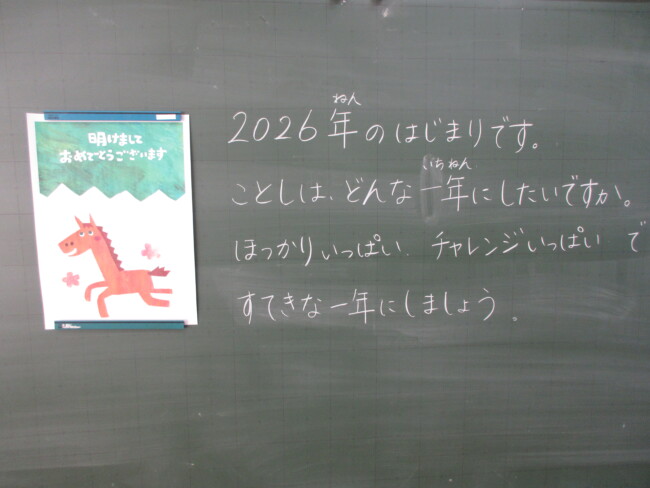 明けまして
おめでとうございます
ねん
2026年のはじまりです。
いちねん
ことしは、どんな一年にしたいですか。
ほっかりいっぱい、チャレンジいっぱいで
すてきな一年にしましょう。